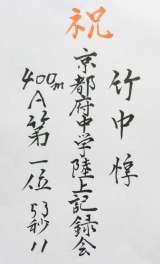 祝
竹中惇
京都府中学陸上記録会
400mA第一位 53秒11